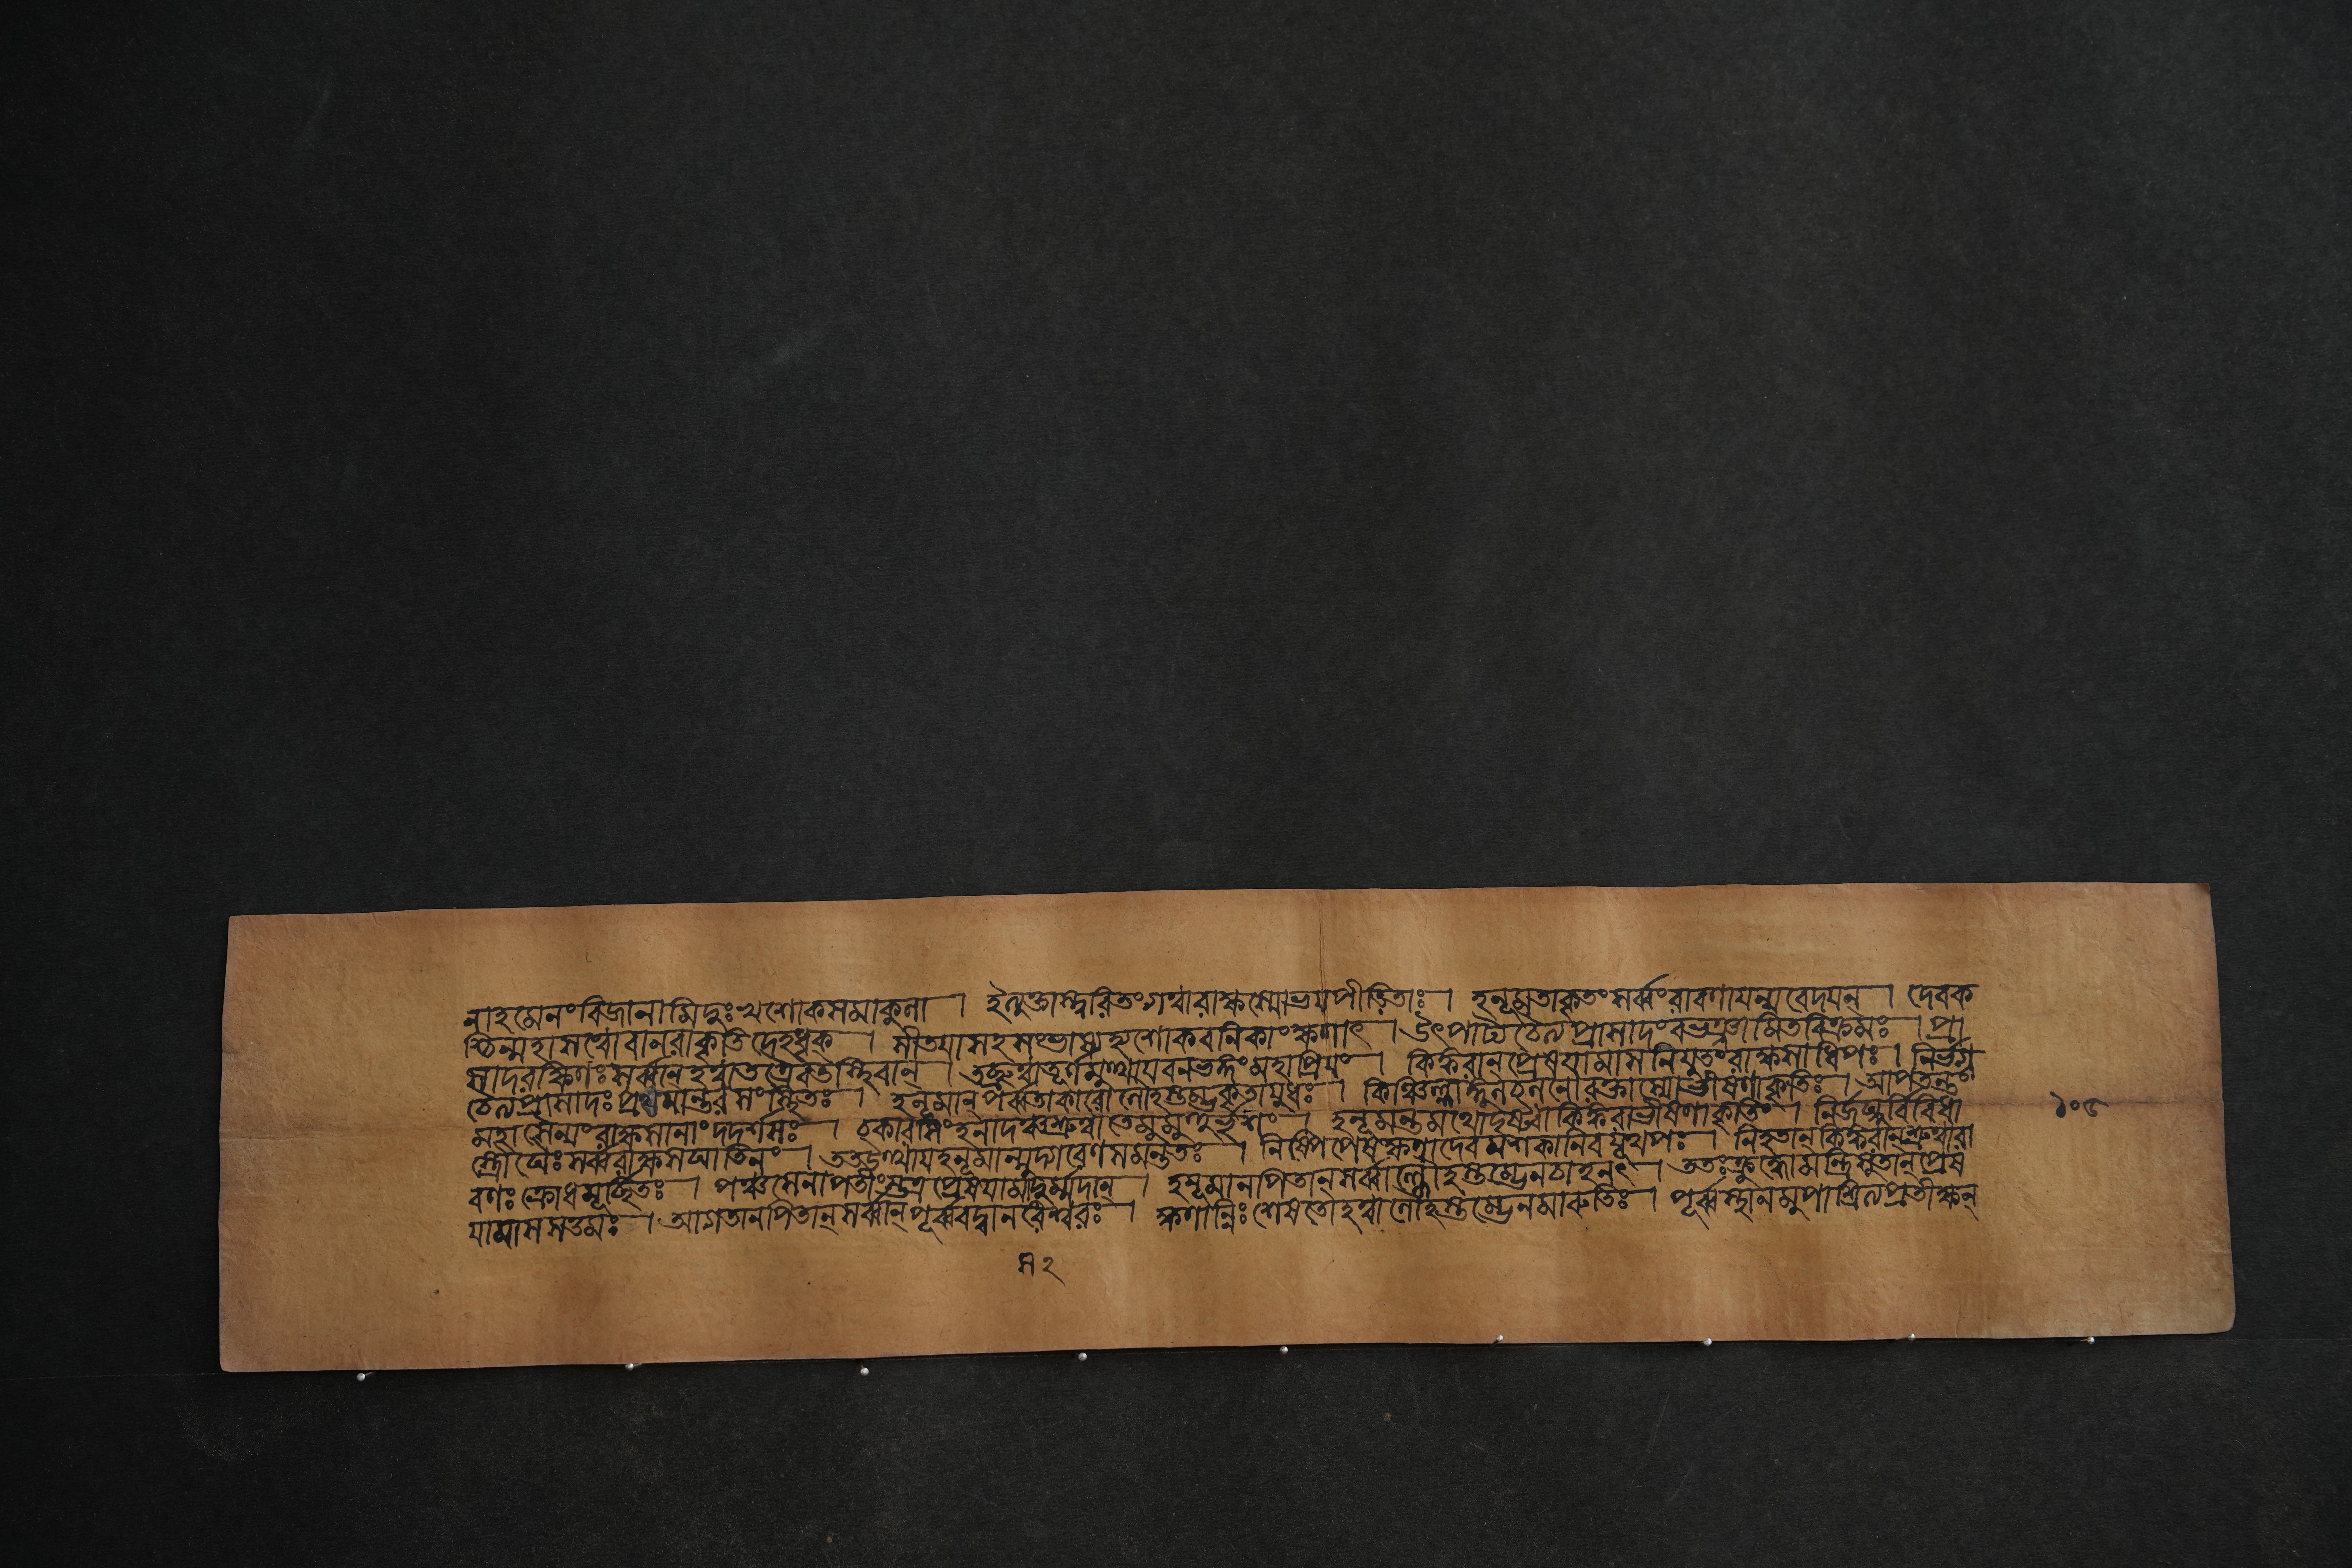 নাহমেনং বিজানামি দুঃখশোকসমাকুলা । ইত্যুক্তাস্ত্বরিতং গত্বা রাক্ষস্যো ভয়পীড়িতাঃ । হনূমতা কৃতং সর্ব্বং রাবণায় ন্যবেদয়ন্ । দেব ক
শ্চিন্মহাসত্বো বানরাকৃতিদেহধৃক্ । সীতয়া সহ সংভাষ্য হ্যশোকবনিকাং ক্ষণাৎ । উৎপাট্য চৈত্যপ্রাসাদং বভঞ্জামিতবিক্রমঃ । প্রা
সাদরক্ষিণঃ সর্ব্বান্ হত্বা তত্রৈব তস্থিবান্ । তচ্ছ্রুত্বা তূর্ণমুত্থায় বনভঙ্গং মহাপ্রিয়ং । কিঙ্করান্ প্রেষয়ামাস নিযুতং রাক্ষসাধিপঃ । নির্ভগ্ন
চৈত্যপ্রাসাদঃ প্রথমান্তরসংস্থিতঃ । হনূমান্ পর্ব্বতাকারো লোহস্তম্ভকৃতায়ুধঃ । কিঞ্চিল্লাঙ্গূলচলনো রক্তাস্যো ভীষণাকৃতিঃ । আপতন্তং
মহাসৈন্যং রাক্ষসানাং দদর্শ সঃ । চকার সিংহনাদঞ্চ শ্রুত্বা তে মুমুহুর্ভৃশং । হনূমন্তমথো দৃষ্ট্বা কিঙ্করা ভীষণাকৃতিং । নির্জঘ্নুর্বিবিধা
স্ত্রৌঘৈঃ সর্ব্বরাক্ষসঘাতিনং । তত উত্থায় হনূমান্ মুদ্গরেণ সমন্ততঃ । নিষ্পিপেষ ক্ষণাদেব মশকানিব যূথপঃ । নিহতান্ কিঙ্করান্ শ্রুত্বা রা
বণঃ ক্রোধমূর্চ্ছিতঃ । পঞ্চ সেনাপতীংস্তত্র প্রেষয়ামাস দুর্ম্মদান্ । হনূমানপি তান্ সর্ব্বাল্লোহস্তম্ভেন চাহনৎ । ততঃ ক্রুদ্ধো মন্ত্রিসুতান্ প্রেষ
য়ামাস সপ্তমঃ । আগতানপি তান্ সর্ব্বান্ পূর্ব্ববদ্বানরেশ্বরঃ । ক্ষণান্নিঃশেষতো হত্বা লোহস্তম্ভেন মারুতিঃ । পূর্ব্বস্থানমুপাশ্রিত্য প্রতীক্ষন্
১০৫